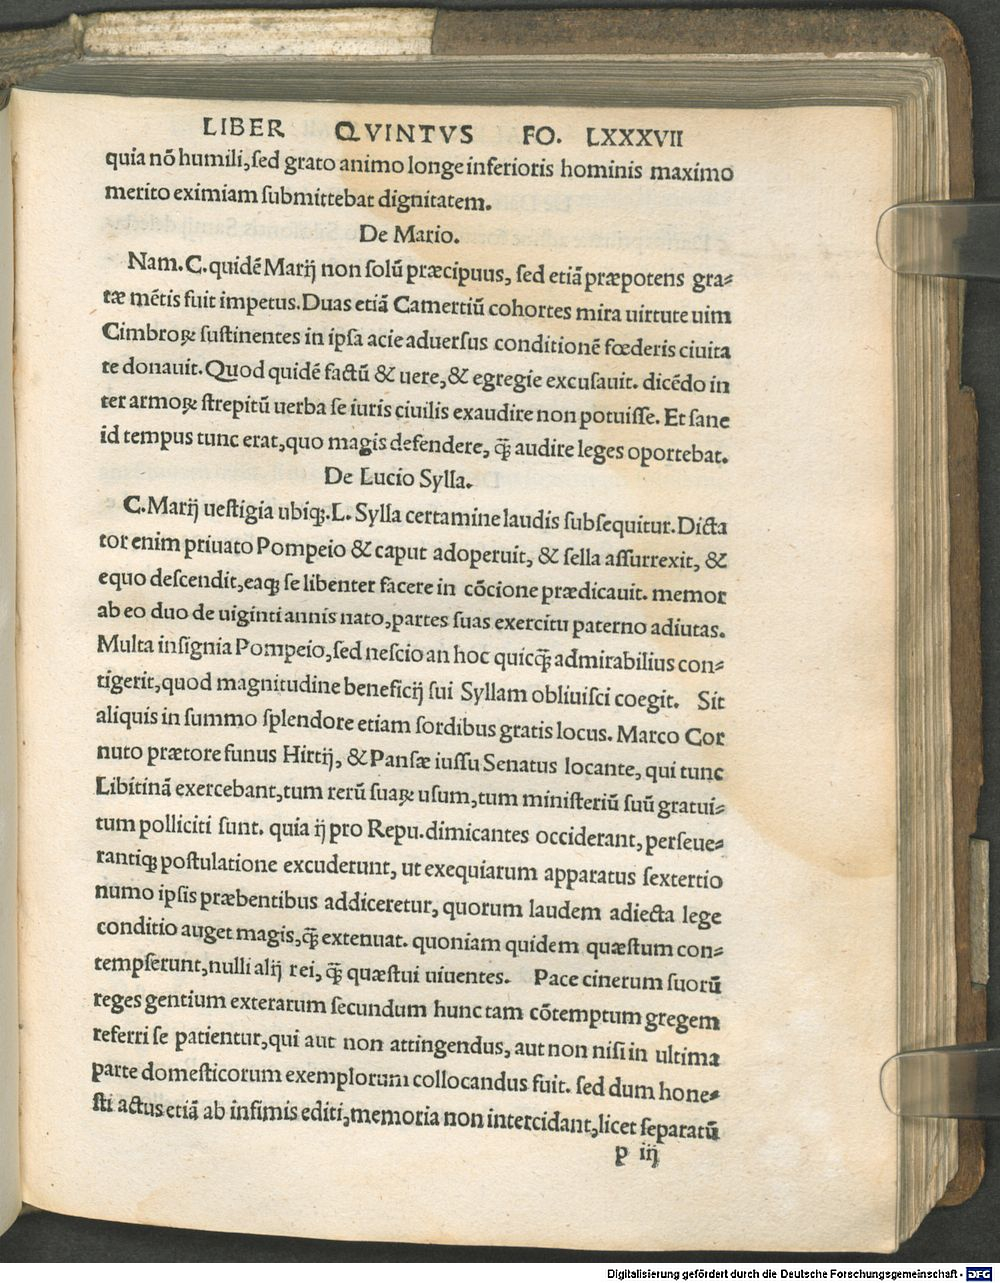 LIBER QVINTVS FO. LXXXVII
quia nõ humili, ſed grato animo longe inferioris hominis maximo
merito eximiam ſubmittebat dignitatem.
De Mario.
Nam. C. quidẽ Marĳ non ſolũ præcipuus, ſed etiã præpotens gra⸗
tæ mẽtis fuit impetus. Duas etiã Camertiũ cohortes mira uirtute uim
Cimbroꝝ ſuſtinentes in ipſa acie aduerſus conditionẽ fœderis ciuita
te donauit. Quod quidẽ factũ & uere, & egregie excuſauit. dicẽdo in
ter armoꝝ ſtrepitũ uerba ſe iuris ciuilis exaudire non potuiſſe. Et ſane
id tempus tunc erat, quo magis defendere, q̃ audire leges oportebat.
De Lucio Sylla.
C. Marĳ ueſtigia ubiq;. L. Sylla certamine laudis ſubſequitur. Dicta
tor enim priuato Pompeio & caput adoperuit, & ſella aſſurrexit, &
equo deſcendit, eaq; ſe libenter facere in cõcione prædicauit. memor
ab eo duo de uiginti annis nato, partes ſuas exercitu paterno adiutas.
Multa inſignia Pompeio, ſed neſcio an hoc quicq̃ admirabilius con⸗
tigerit, quod magnitudine beneficĳ ſui Syllam obliuiſci coegit. Sit
aliquis in ſummo ſplendore etiam ſordibus gratis locus. Marco Cor
nuto prætore funus Hirtĳ, & Panſæ iuſſu Senatus locante, qui tunc
Libitinã exercebant, tum rerũ ſuaꝝ uſum, tum miniſteriũ ſuũ gratui⸗
tum polliciti ſunt. quia ĳ pro Repu. dimicantes occiderant, perſeue⸗
rantiq; poſtulatione excuderunt, ut exequiarum apparatus ſextertio
numo ipſis præbentibus addiceretur, quorum laudem adiecta lege
conditio auget magis, q̃ extenuat. quoniam quidem quæſtum con⸗
tempſerunt, nulli alĳ rei, q̃ quæſtui uiuentes. Pace cinerum ſuorũ
reges gentium exterarum ſecundum hunc tam cõtemptum gregem
referri ſe patientur, qui aut non attingendus, aut non niſi in ultima
parte domeſticorum exemplorum collocandus fuit. ſed dum hone⸗
ſti actus etiã ab infimis editi, memoria non intercidant, licet ſeparatũ
p iĳ
Digitalisierung gefördert durch die Deutsche Forschungsgemeinschaft - DFG